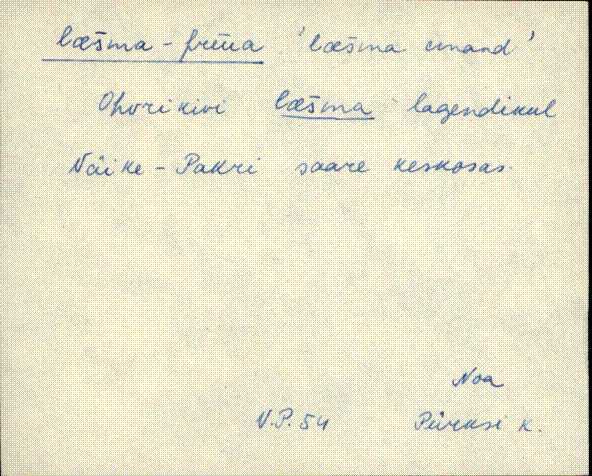 læšma - früa 'læšma emand'
Ohvrikivi læšma lagendikul
Väike - Pakri saare keskosas.
Noa
V.P. 54 Pürksi k.